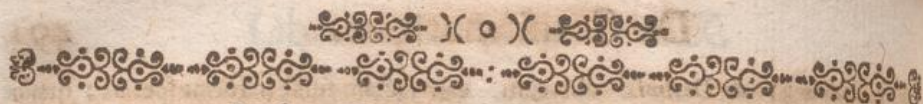 )( o )(